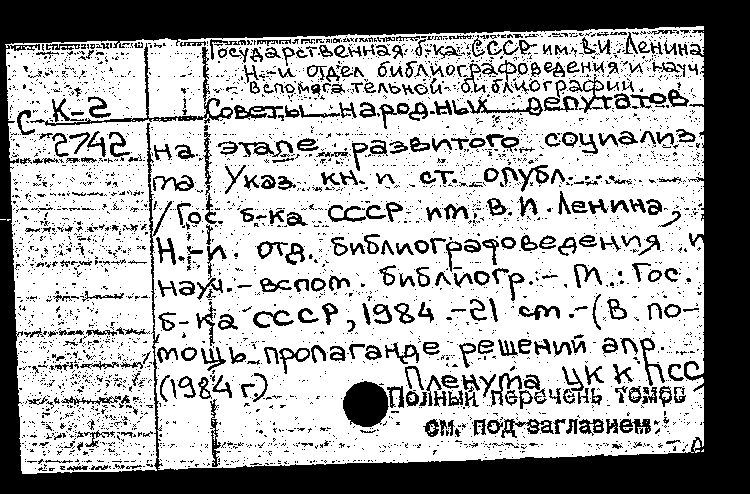 Государственная б-ка СССР им. В.И. Ленина
Н.-и отдел библиографоведения и науч.
- вспомогательной библиографии.
с К-2
2742
Советы народных депутатов
на этапе развитого социализ-
ма Указ. кн. и ст. опубл. ...
/ Гос. б-ка СССР им. В.И. Ленина,
Н.-и. отд. библиографоведения и
науч.-вспом. библиогр. - М.: Гос.
б-ка СССР, 1984. - 21 см. - (В по-
мощь пропаганде решений апр.
(1984 г.) Пленума ЦК КПСС
Полный перечень томов
см. под заглавием: